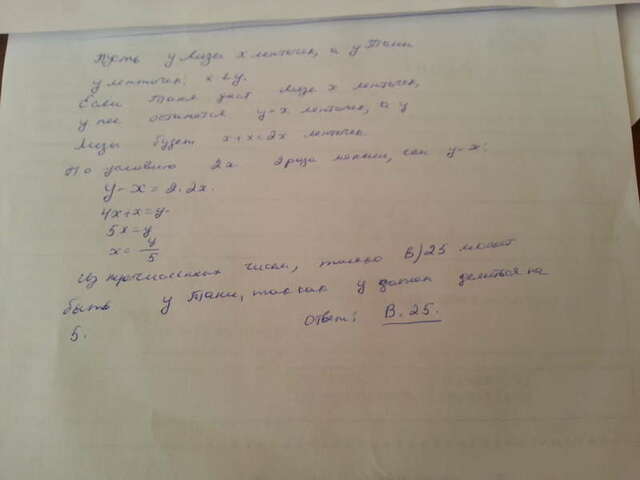 Пусть у Лизы x ленточек, а у Тани
y ленточек; x < y.
Если Таня даст Лизе x ленточек,
у нее останется y-x ленточек, а у
Лизы будет x+x=2x ленточек
По условию 2x 2 раза меньше, чем y-x:
y-x=2·2x.
4x+x=y.
5x=y
x=y/5
Из перечисленных чисел, только В)25 может
быть у Тани, так как y должен делиться на
5. Ответ: В. 25.